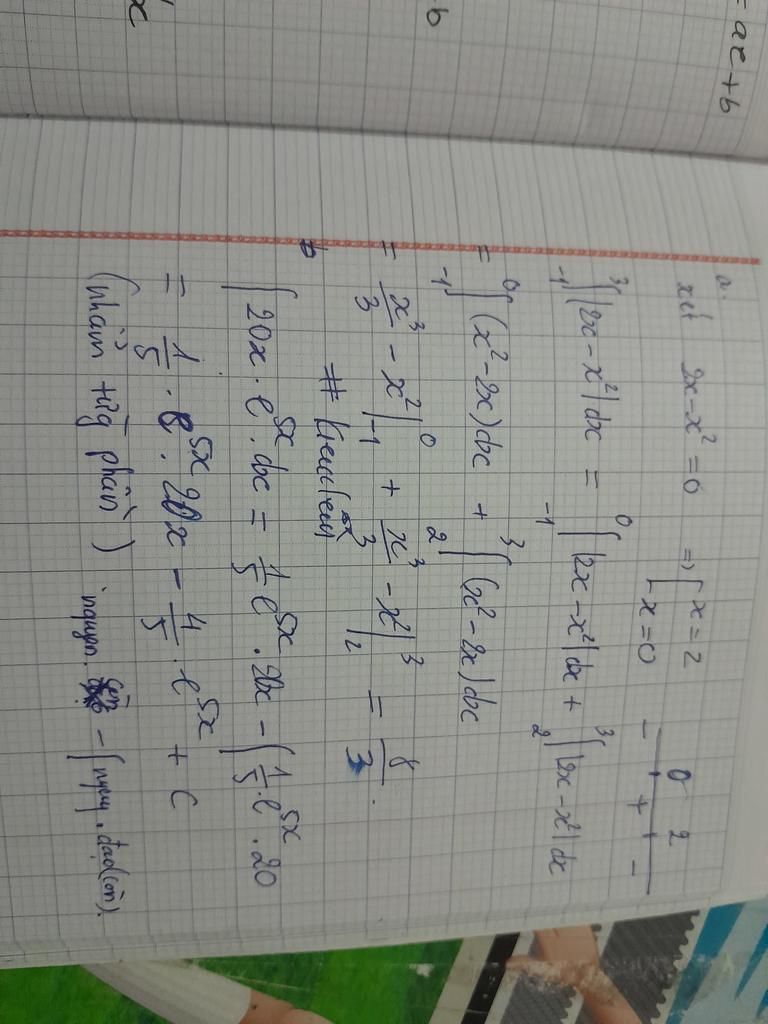 = ax + b
b
x
a.
xét 2x - x² = 0 ⇒ [ x = 2
x = 0
0 2
- + -
³∫₋₁ |2x - x²| dx = ⁰∫₋₁ |2x - x²| dx + ³∫₂ |2x - x²| dx
= ⁰∫₋₁ (x² - 2x) dx + ³∫₂ (x² - 2x) dx
= x³/3 - x² |⁰₋₁ + x³/3 - x² |³₂ = 8/3 .
b
∫ 20x . e^5x . dx = 1/5 e^5x . 20x - ∫ 1/5 . e^5x . 20
= 1/5 . e^5x . 20x - 4/5 . e^5x + C
(nhầm từg phần) nguyên . - ∫ nguy . đạo (còn).